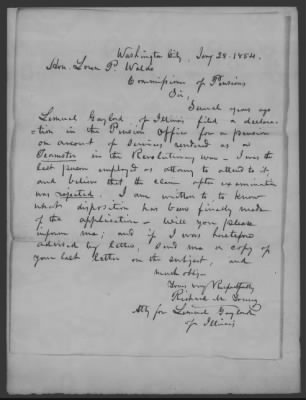 Washington City, Jany 28. 1854.
Hon. Loren P. Waldo
Commissioner of Pensions
Sir,
Several years ago
Lemuel Gaylord, of Illinois filed a declara-
-tion in the Pension Office for a pension
on account of services, rendered as a
Teamster in the Revolutionary war - I was the
last person employed as attorney to attend to it;
and believe that the claim after examination
was rejected. I am written to to know
what disposition has been finally made
of the application - Will you please
inform me; and if I was heretofore
advised by letter, send me a copy of
your last letter on the subject, and
much oblige
Yours very Respectfully
Richard M. Young
Atty for Lemuel Gaylord
of Illinois